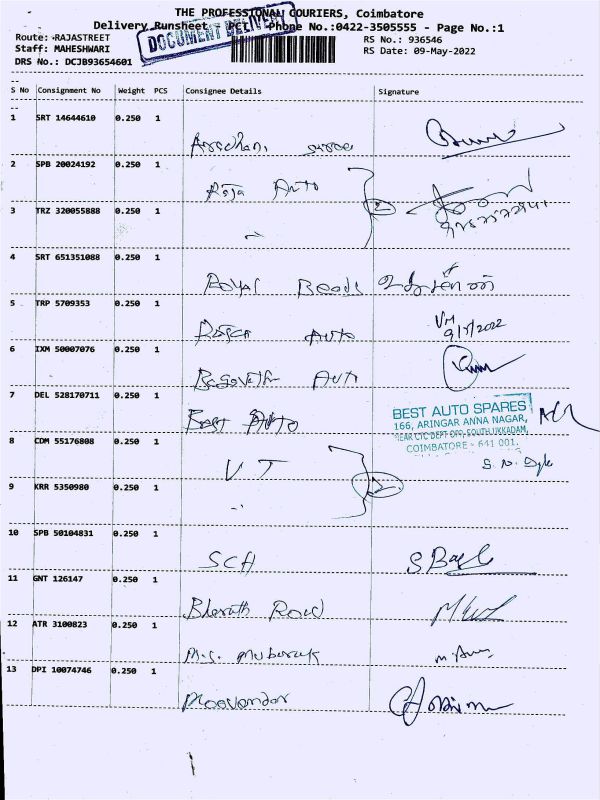 THE PROFESSIONAL COURIERS, Coimbatore
Delivery Runsheet - PCI - Phone No.:0422-3505555 - Page No.:1
DOCUMENT DELIVERY
Route: RAJASTREET
RS No.: 936546
Staff: MAHESHWARI
RS Date: 09-May-2022
DRS No.: DCJB93654601
S No Consignment No Weight PCS Consignee Details Signature
1 SRT 14644610 0.250 1
2 SPB 20024192 0.250 1 Roja Auto
3 TRZ 320055888 0.250 1
2
4 SRT 651351088 0.250 1 Royal Beads
5 TRP 5709353 0.250 1 Auto
VM
9/5/2022
6 IXM 50007076 0.250 1 Auto
7 DEL 528170711 0.250 1 Best Auto
BEST AUTO SPARES
166, ARINGAR ANNA NAGAR,
NEAR CTC DEPT OPP, SOUTH UKKADAM,
COIMBATORE - 641 001.
8 CDM 55176808 0.250 1 V T
9 KRR 5350980 0.250 1
2
10 SPB 50104831 0.250 1 SCH
11 GNT 126147 0.250 1 Bharath Road
12 ATR 3100823 0.250 1 M.S. Mubarak
13 DPI 10074746 0.250 1 Moovendar